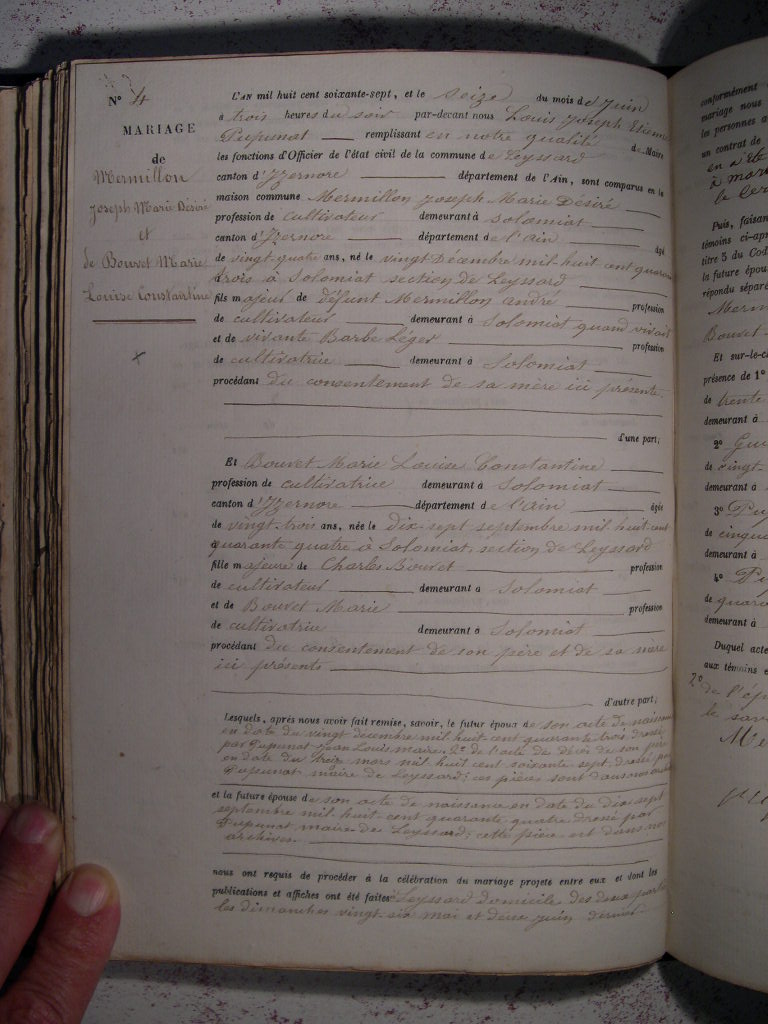 N° 4
MARIAGE
de
Mermillon
Joseph Marie Désiré
et
de Bouvet Marie
Louise Constantine
L'AN mil huit cent soixante-sept, et le seize du mois de Juin
à trois heures du soir par-devant nous Louis Joseph Etienne
Pupunat remplissant en notre qualité de Maire
les fonctions d'Officier de l'état civil de la commune de Leyssard
canton d'Izernore département de l'Ain, sont comparus en la
maison commune Mermillon Joseph Marie Désiré
profession de Cultivateur demeurant à Solomiat
canton d'Izernore département de l'ain âgé
de vingt-quatre ans, né le vingt Décembre mil-huit cent quarante
trois à Solomiat section de Leyssard
fils majeur de défunt Mermillon andré profession
de cultivateur demeurant à Solomiat quand vivait
et de vivante Barbe Léger profession
de cultivatrice demeurant à Solomiat
procédant du consentement de sa mère ici présente
d'une part;
Et Bouvet Marie Louise Constantine
profession de cultivatrice demeurant à Solomiat
canton d'Izernore département de l'ain âgée
de vingt-trois ans, née le dix-sept septembre mil-huit-cent
quarante quatre à Solomiat, section de Leyssard
fille majeure de Charles Bouvet profession
de cultivateur demeurant à Solomiat
et de Bouvet Marie profession
de cultivatrice demeurant à Solomiat
procédant du consentement de son père et de sa mère
ici présents
d'autre part;
Lesquels, après nous avoir fait remise, savoir, le futur époux de son acte de naissance
en date du vingt décembre mil huit cent quarante trois, dressé
par Pupunat Jean Louis maire, 2° de l'acte de décès de son père
en date du treize mars mil huit cent soixante sept, dressé par
Pupunat maire de Leyssard; ces pièces sont dans nos archives
et la future épouse de son acte de naissance en date du dix sept
septembre mil-huit-cent quarante, quatre dressé par
Pupunat maire de Leyssard; cette pièce est dans nos
archives.
nous ont requis de procéder à la célébration du mariage projeté entre eux et dont les
publications et affiches ont été faites à Leyssard domicile des deux parties
les dimanches vingt-six mai et deux juin dernier
conformément
mariage nous
les personnes a
un contrat de
en n'été
à mar
le cer
Puis, faisan
témoins ci-apr
titre 5 du Cod
la future épou
répondu séparé
Merm
Bouvet
Et sur-le-c
présence de 1°
de trente
demeurant à
2° Gui
de vingt-
demeurant à
3° Pu
de cinqua
demeurant à
4° Pu
de quara
demeurant à
Duquel acte
aux témoins e
2° de l'ép
le sav
Me